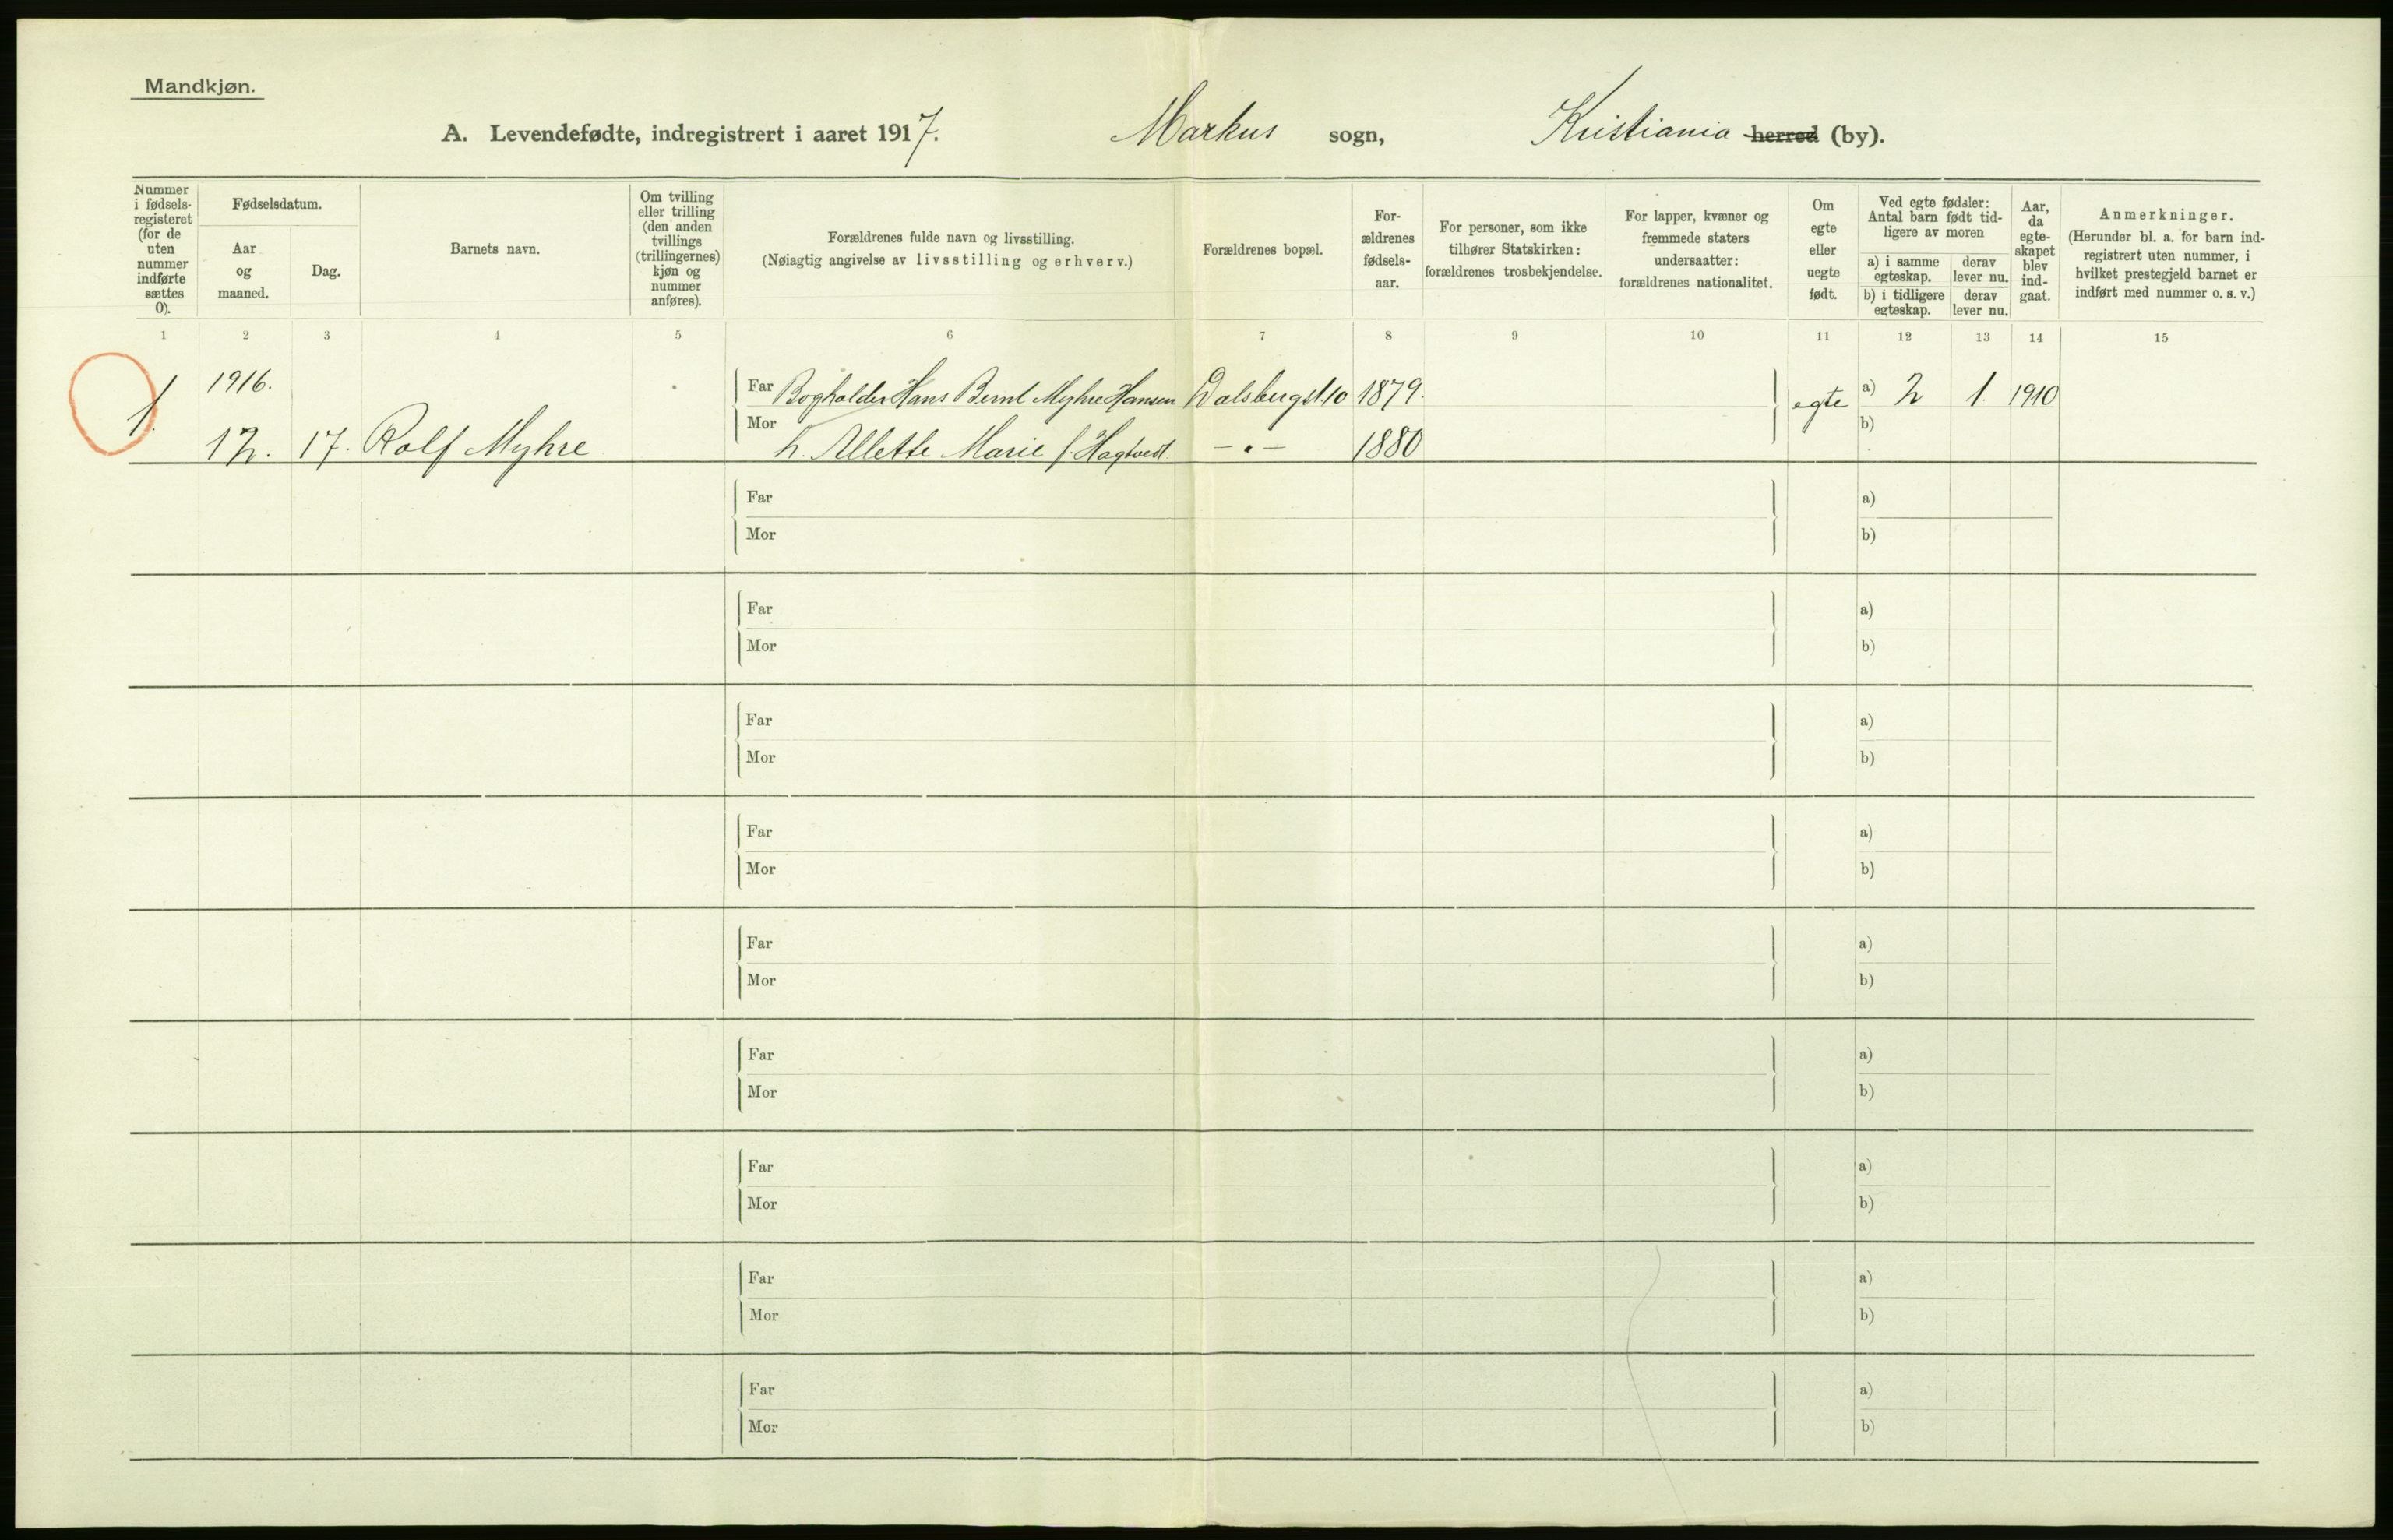 Mandkjøn.
A. Levendefødte, indregistrert i aaret 1917. Markus sogn, Kristiania herred (by).
Nummer i fødsels-registeret (for de uten nummer indførte sættes 0).
Fødselsdatum.
Aar og maaned.
Dag.
Barnets navn.
Om tvilling eller trilling (den anden tvillings (trillingernes) kjøn og nummer anføres).
Forældrenes fulde navn og livsstilling.
(Nøiagtig angivelse av livsstilling og erhverv.)
Forældrenes bopæl.
For-ældrenes fødsels-aar.
For personer, som ikke tilhører Statskirken: forældrenes trosbekjendelse.
For lapper, kvæner og fremmede staters undersaatter: forældrenes nationalitet.
Om egte eller uegte født.
Ved egte fødsler: Antal barn født tid-ligere av moren
a) i samme egteskap.
derav lever nu.
b) i tidligere egteskap.
derav lever nu.
Aar, da egte-skapet blev ind-gaat.
Anmerkninger.
(Herunder bl. a. for barn ind-registrert uten nummer, i hvilket prestegjeld barnet er indført med nummer o. s. v.)
1 2 3 4 5 6 7 8 9 10 11 12 13 14 15
1916. Far Bogholder Hans Bernt Myhre Hansen Dalsbergst. 10 1879. egte a) 2 1 1910
1. 12. 17. Rolf Myhre Mor h. Allette Marie f. Hagtvedt — " — 1880 b)
Far a)
Mor b)
Far a)
Mor b)
Far a)
Mor b)
Far a)
Mor b)
Far a)
Mor b)
Far a)
Mor b)
Far a)
Mor b)
Far a)
Mor b)
Far a)
Mor b)